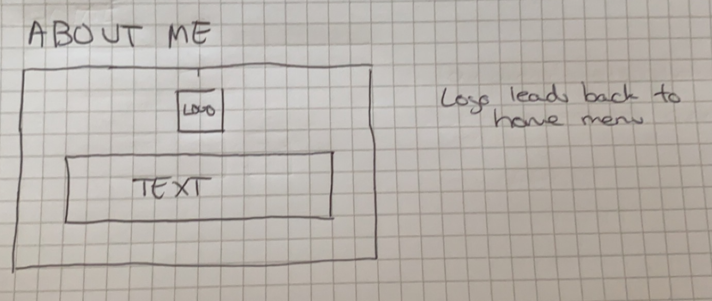 ABOUT ME
LOGO
TEXT
Logo leads back to
home menu